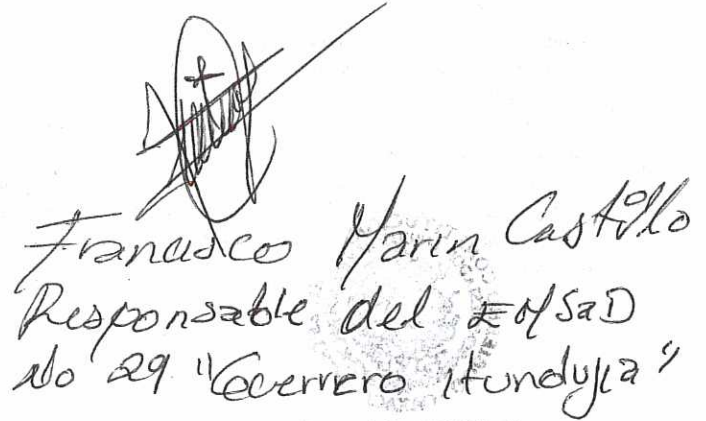 Francisco Marin Castillo
Responsable del EMSaD
No 29 "Guerrero Itundujia"